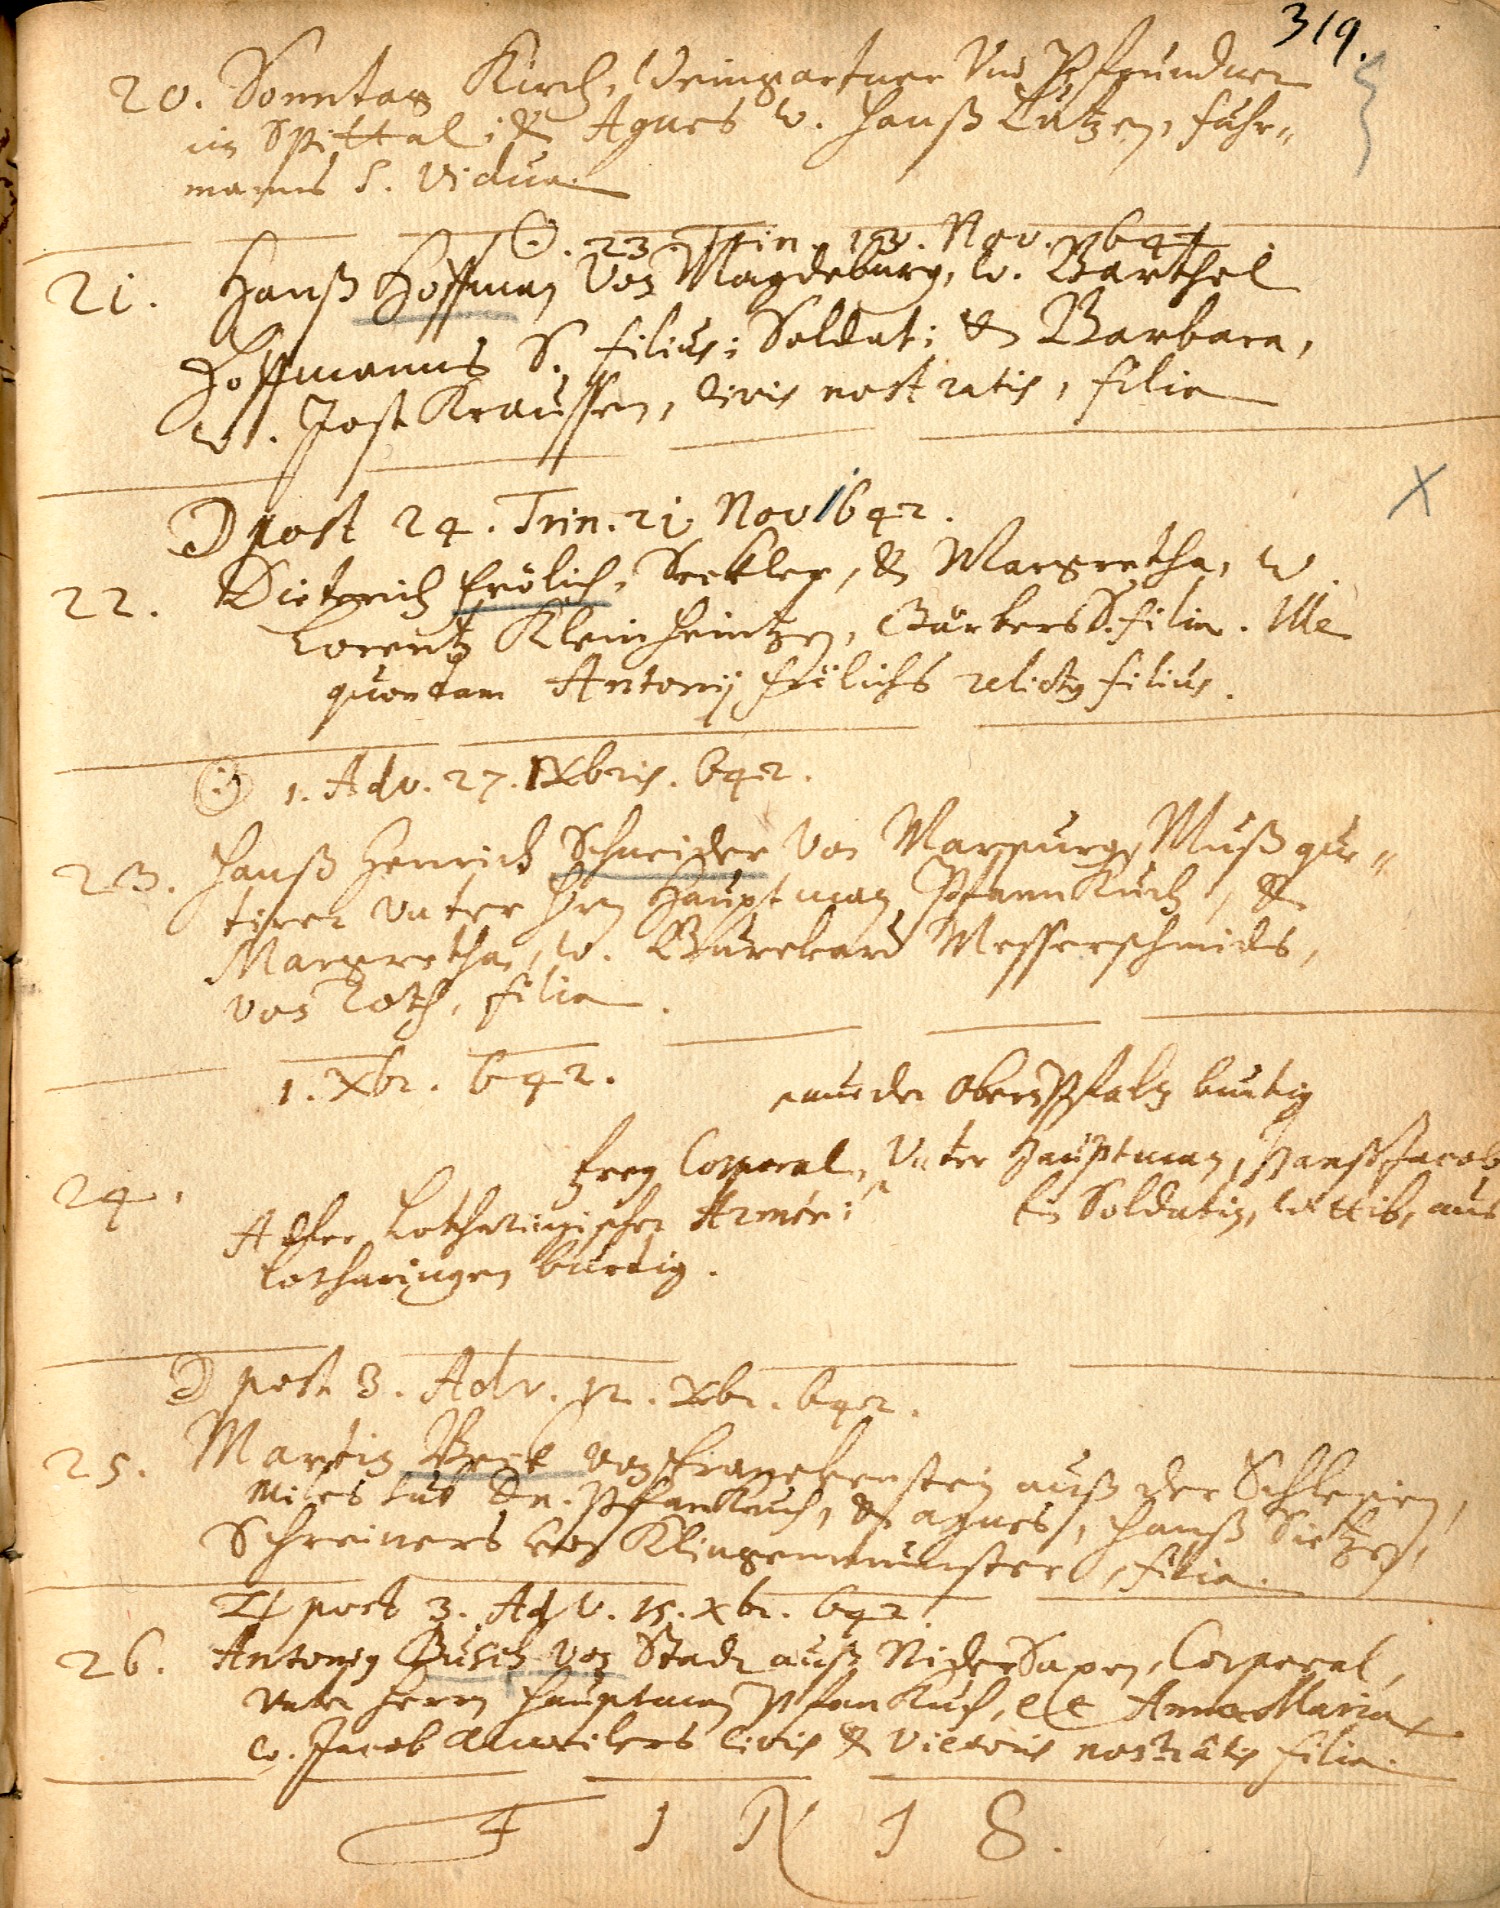 319.
20. Sonntag Kirch, Weingartner Vnd Pfründner
im Spittal: & Agnes w. Hanß Lutzen, fuhr-
manns S. Vidua.
☉. 23. Trin. 13. Nov. 1642
21. Hanß Hoffman Von Magdeburg, w. Barthel
Hoffmanns S. filius; Soldat; & Barbara,
w. Jost Kraussen, Civis nostratis, filia
☽ post 24. Trin. 21 Nov 1642.
22. Dieterich Frölich, Seckler, & Margretha, w.
Lorentz Kleinheintzen, Gärbers S. filia. Ille
quondam Antonij Frölichs relictus filius.
☉ 1. Adv. 27. IXbris. 642.
23. Hanß Henrich Schneider Von Marpurg, Mußque-
tirer Vnter Hrn Hauptman Pfannkuch, &
Margretha, w. Burckard Messerschmids,
von Roth, filia.
1. Xbr. 642.
auß der Obern Pfaltz burtig
24. frey Corporal, Vnter Hauptman, Hanß Jacob
Lotharingischer Armée; Ein Soldatin, Wittib, aus
Lotharingen burtig.
☽ post 3. Adv. 12. Xbr. 642.
25. Martin Beck von Franckenstein auß der Schlesien,
Miles sub Dn. Pfankuch, & agnes, Hanß Sietzen,
Schreiners von Klingenmünster, filia.
♃ post 3. Adv. 15. Xbr. 642.
26. Antonig Busch von Stadt auß NiderSaxen, Corporal,
Vnter Herrn Hauptman Pfankuch, et Anna Maria
w. Jacob Anweilers civis & Vietoris nostratis filia.
F I N I S.